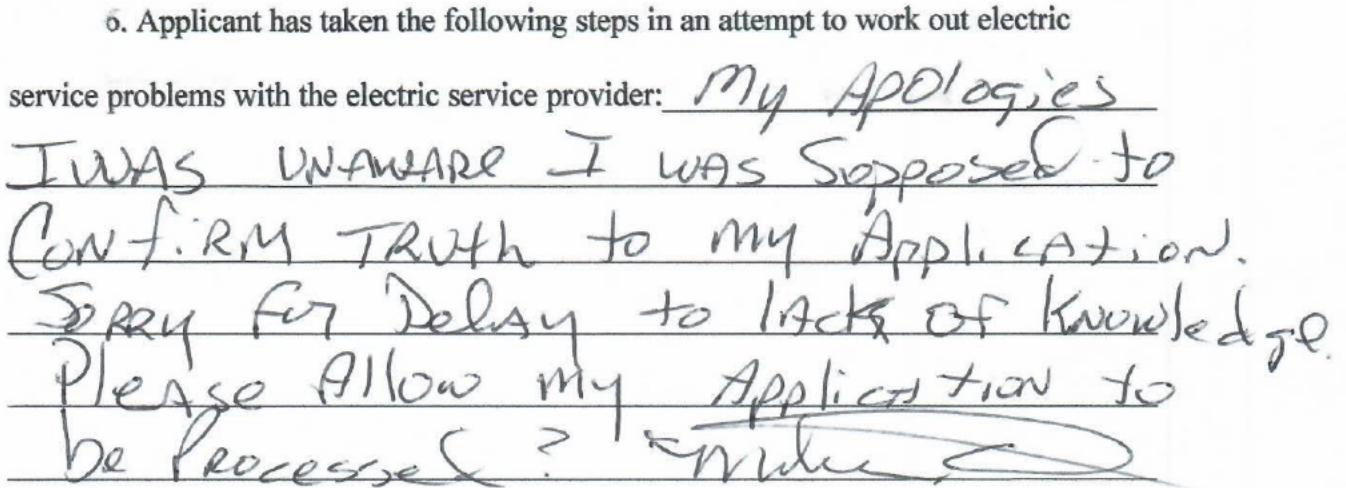 6. Applicant has taken the following steps in an attempt to work out electric
service problems with the electric service provider: My Apologies
I WAS UNAWARE I WAS Sopposed to
CONfiRM TRUth to my Application.
SORRY for Delay to lack of Knowledge.
Please Allow my Application to
be Processed?